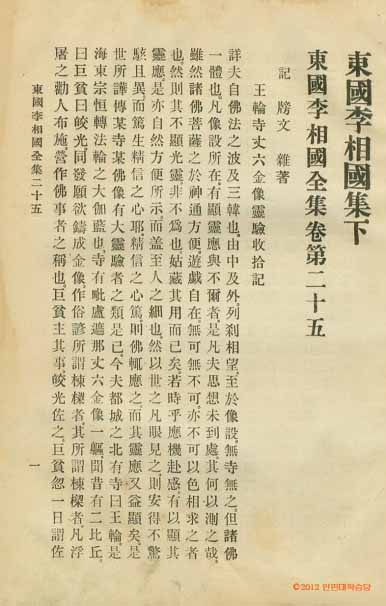 東國李相國集下
東國李相國全集卷第二十五
記 牓文 雜著
王輪寺丈六金像靈驗收拾記
詳夫自佛法之波及三韓也,由中及外,列刹相望,至於像設,無寺無之,但諸佛
一體也,凡像設所在,有顯靈應與不爾者,是凡夫思想未到處,其何以測之哉,
雖然諸佛菩薩之於神通方便,遊戱自在,無可無不可,亦不可以色相求之者
也,然則其不顯光靈,非不爲也,姑藏其用而已矣,若時乎應機赴感,有以顯其
靈應,是亦自然方便所示,而盖至人之細也,然以世之凡眼見之,則安得不驚
駭且異而篤生精信之心耶,精信之心篤,則佛輒應之,而其靈應又益顯矣,是
世所譁傳某寺某佛像有大靈驗者之類是已,今夫都城之北有寺曰王輪,是
海東宗恒轉法輪之大伽藍也,寺有毗盧遮那丈六金像一軀,聞昔有二比丘,
曰巨貧曰皎光,同發願欲鑄成金像,作俗諺所謂棟樑者,其所謂棟樑者,凡浮
屠之勸人布施,營作佛事者之稱也,巨貧主其事,皎光佐之,巨貧忽一日謂佐
東國李相國全集二十五
一
©2012 인민대학습당